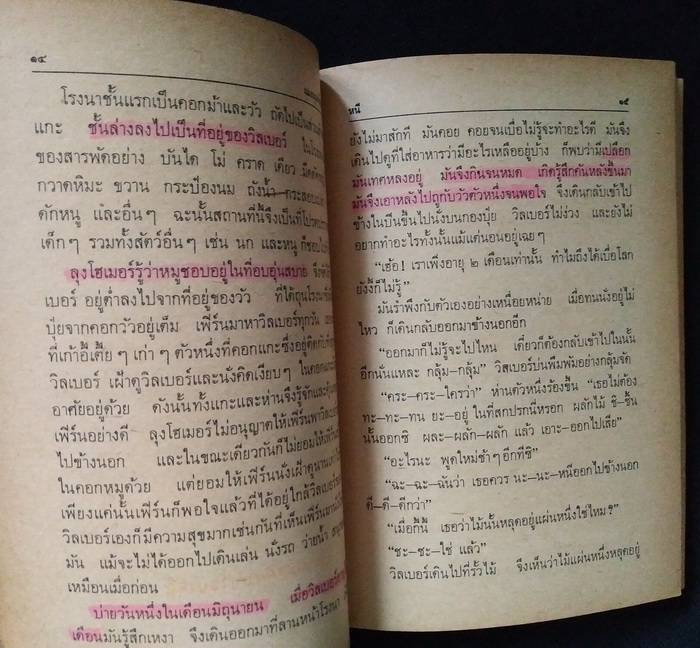 ๑๔
โรงนาชั้นแรกเป็นคอกม้าและวัว ถัดไปเป็น
แกะ ชั้นล่างลงไปเป็นที่อยู่ของวิลเบอร์ ใน
ของสารพัดอย่าง บันได โม่ คราด เคียว
กวาดหิมะ ขวาน กระป๋องนม ถังน้ำ กระสอบ
ดักหนู และอื่นๆ ฉะนั้นสถานที่นี้จึงเป็นที่
เด็กๆ รวมทั้งสัตว์อื่นๆ เช่น นก และหนู ก็ชอบ
ลุงโฮเมอร์รู้ว่าหมูชอบอยู่ในที่อบอุ่นสบาย
เบอร์ อยู่ต่ำลงไปจากที่อยู่ของวัว ที่ใต้ถุน
ปุ๋ยจากคอกวัวอยู่เต็ม เฟิร์นมาหาวิลเบอร์ทุกวัน
ที่เก้าอี้เตี้ยๆ เก่าๆ ตัวหนึ่งที่คอกแกะซึ่งอยู่ติดกับ
วิลเบอร์ เฝ้าดูวิลเบอร์และนั่งคิดเงียบๆ ในคอก
อาศัยอยู่ด้วย ดังนั้นทั้งแกะและห่านจึงรู้จักและ
เฟิร์นอย่างดี ลุงโฮเมอร์ไม่อนุญาตให้เฟิร์นพา
ไปข้างนอก และในขณะเดียวกันก็ไม่ยอมให้เฟิร์น
ในคอกหมูด้วย แต่ยอมให้เฟิร์นนั่งเฝ้าดูนาน
เพียงแค่นั้นเฟิร์นก็พอใจแล้วที่ได้อยู่ใกล้วิลเบอร์
วิลเบอร์เองก็มีความสุขมากเช่นกันที่เห็นเฟิร์นมา
มัน แม้จะไม่ได้ออกไปเดินเล่น นั่งรถ ว่ายน้ำ
เหมือนเมื่อก่อน
บ่ายวันหนึ่งในเดือนมิถุนายน เมื่อวิลเบอร์
เดือนมันรู้สึกเหงา จึงเดินออกมาที่ลานหน้าโรงนา
หนี
๑๕
ยังไม่มาสักที มันคอย คอยจนเบื่อไม่รู้จะทำอะไรดี มันจึง
เดินไปดูที่ใส่อาหารว่ามีอะไรเหลืออยู่บ้าง ก็พบว่ามีเปลือก
มันเทศหลงอยู่ มันจึงกินจนหมด เกิดรู้สึกคันหลังขึ้นมา
มันจึงเอาหลังไปถูกับรั้วตัวหนึ่งจนพอใจ จึงเดินกลับเข้าไป
ข้างในปีนขึ้นไปนั่งบนกองปุ๋ย วิลเบอร์ไม่ง่วง และยังไม่
อยากทำอะไรทั้งนั้นแม้แต่นอนอยู่เฉยๆ
“เฮ้อ! เราเพิ่งอายุ ๒ เดือนเท่านั้น ทำไมถึงได้เบื่อโลก
ยังงี้ก็ไม่รู้”
มันรำพึงกับตัวเองอย่างเหนื่อยหน่าย เมื่อทนนั่งอยู่ไม่
ไหว ก็เดินกลับออกมาข้างนอกอีก
“ออกมาก็ไม่รู้จะไปไหน เดี๋ยวก็ต้องกลับเข้าไปในนั้น
อีกนั่นแหละ กลุ้ม–กลุ้ม” วิลเบอร์บ่นพึมพัมอย่างกลุ้มจัด
“คระ–คระ–ใครว่า” ห่านตัวหนึ่งร้องขึ้น “เธอไม่ต้อง
ทะ–ทะ–ทน ยะ–อยู่ ในที่สกปรกนี่หรอก ผลักไม้ ชิ–ชิ้น
นั้นออกซิ ผละ–ผลัก–ผลัก แล้ว เอาะ–ออกไปเสีย”
“อะไรนะ พูดใหม่ช้าๆ อีกทีซิ”
“ฉะ–ฉะ–ฉันว่า เธอควร นะ–นะ–หนีออกไปข้างนอก
ดี–ดี–ดีกว่า”
“เมื่อกี้นี้ เธอว่าไม้นั้นหลุดอยู่แผ่นหนึ่งใช่ไหม?”
“ชะ–ชะ–ใช่ แล้ว”
วิลเบอร์เดินไปที่รั้วไม้ จึงเห็นว่าไม้แผ่นหนึ่งหลุดอยู่